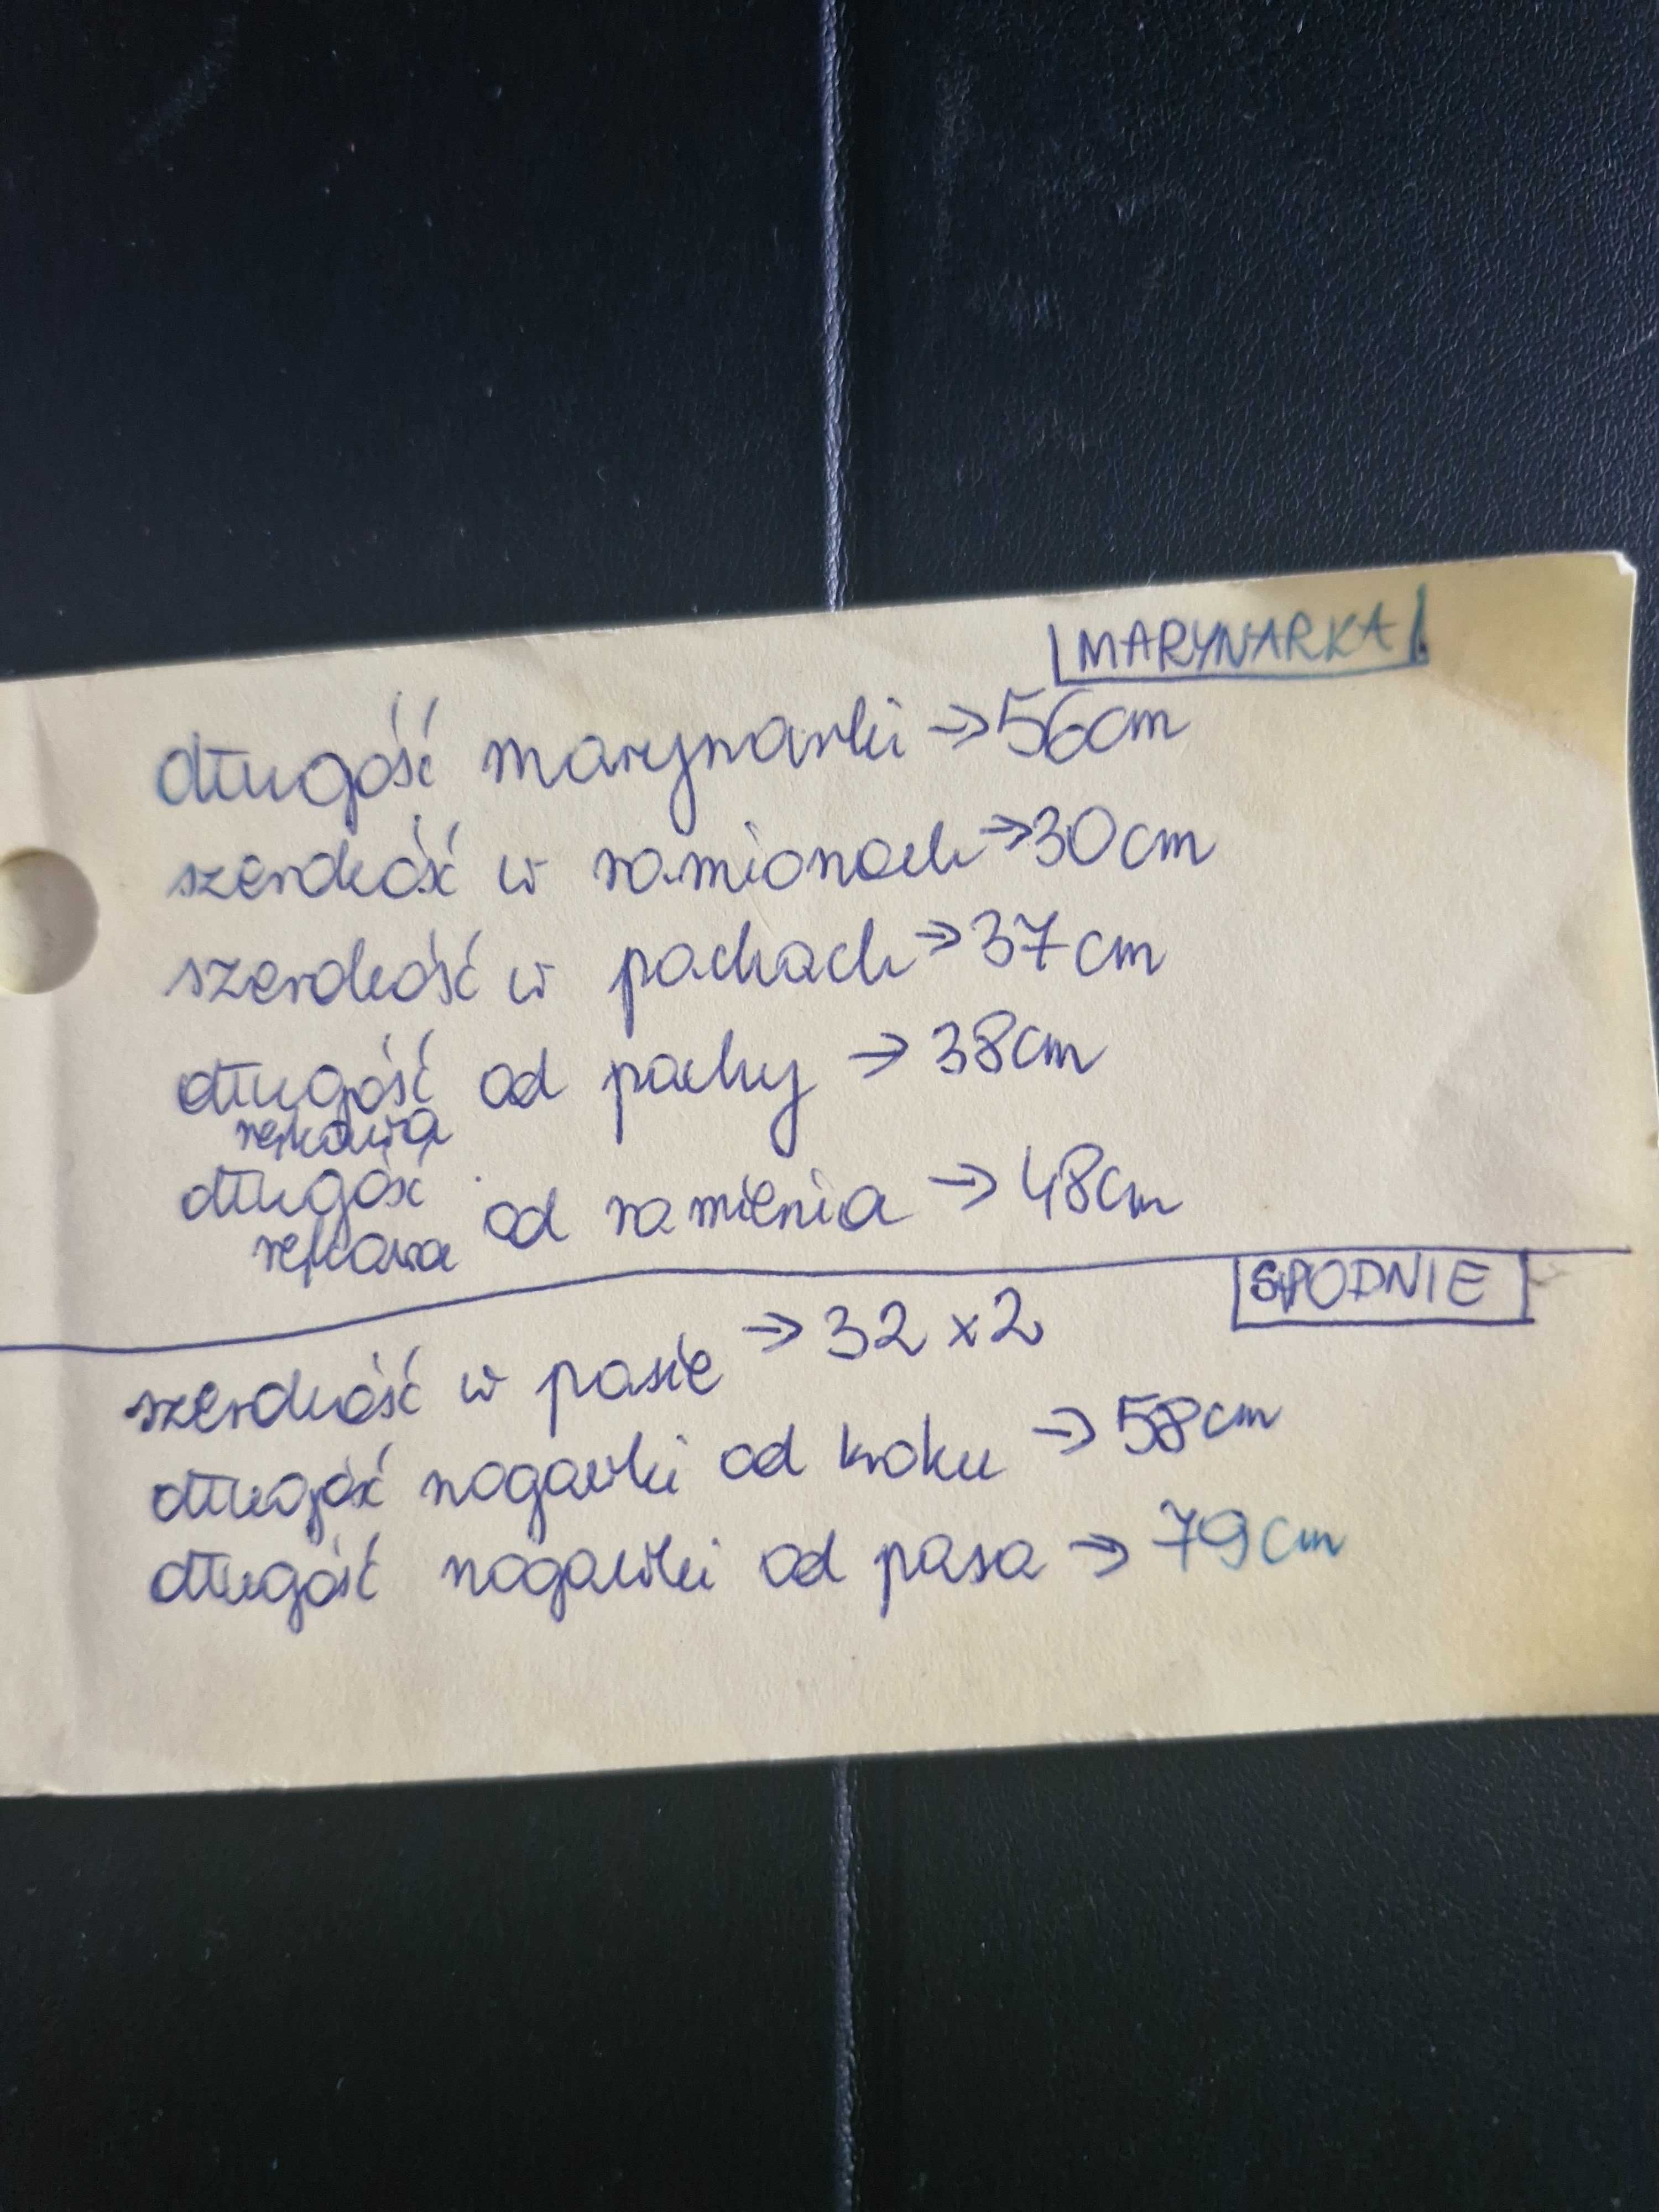 MARYNARKA
długość marynarki → 56cm
szerokość w ramionach → 30cm
szerokość w pachach → 37cm
długość od pachy → 38cm
rękawa
długość od ramienia → 48cm
rękawa
SPODNIE
szerokość w pasie → 32 x 2
długość nogawki od kroku → 58cm
długość nogawki od pasa → 79cm